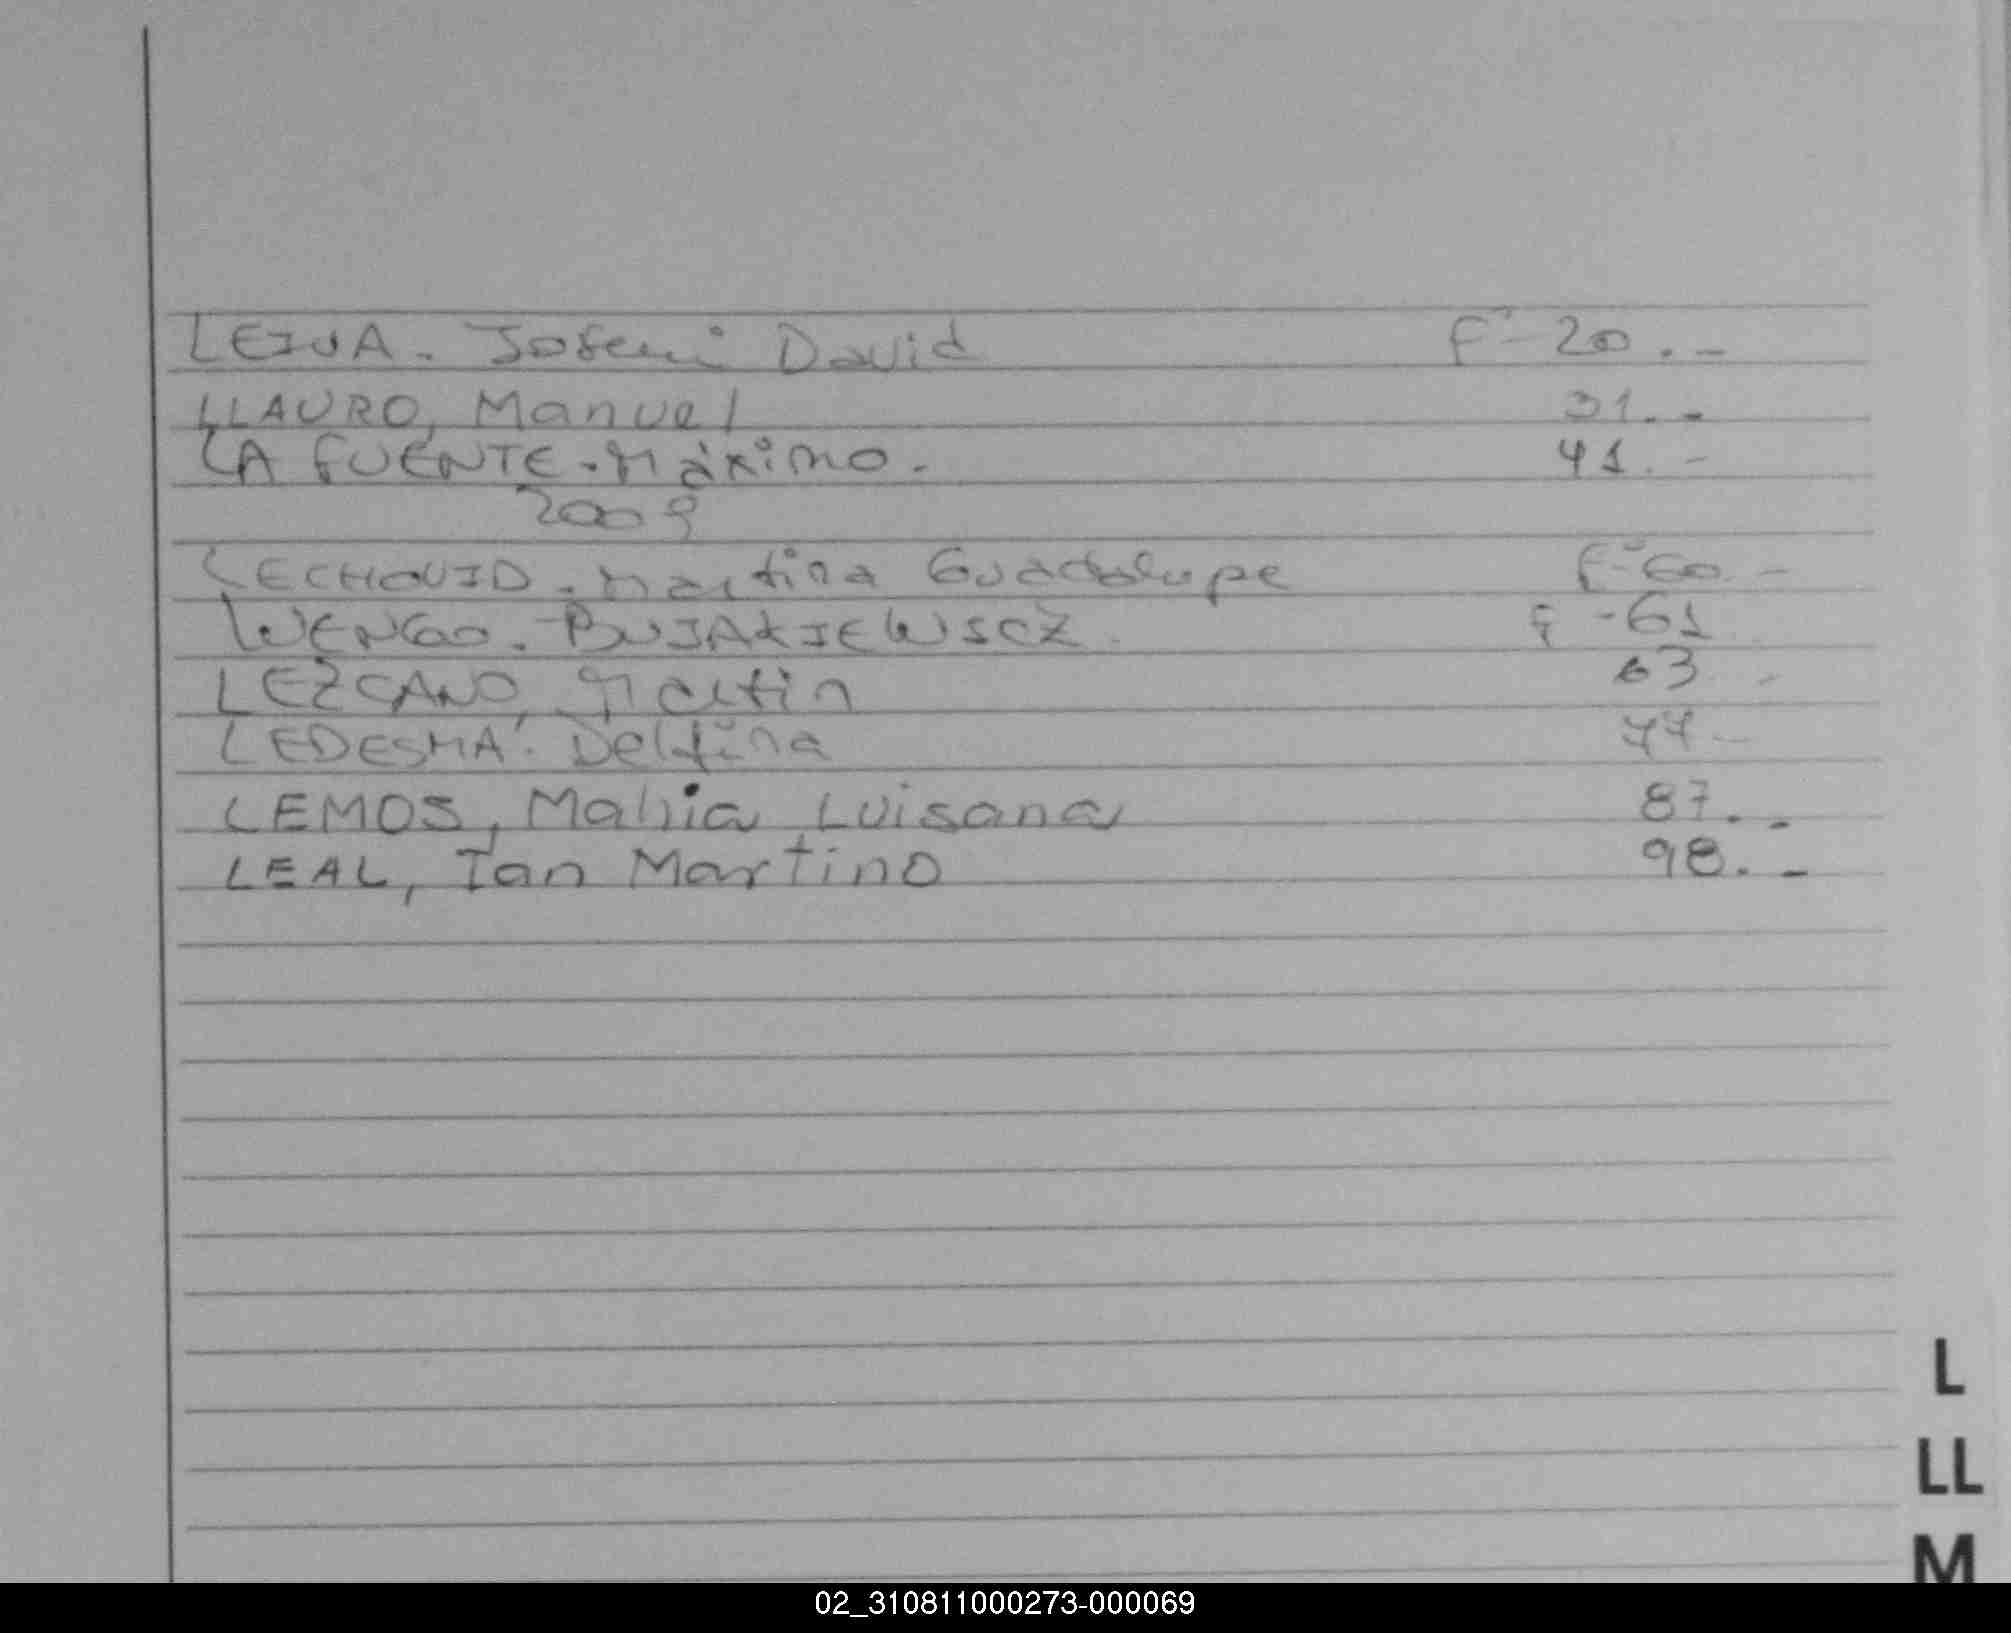 LEIVA. David F° - 20. -
LLAURO, Manuel 31. -
LA FUENTE. Máximo. 41. -
2009
LECHOVID. Martina Guadalupe F° 60. -
BUJAKIEWSCZ. F - 61
LEZCANO, Martin 63 -
LEDESMA. Delfina 77 -
LEMOS, Mahia Luisana 87. -
LEAL, Ian Martino 98. -
L
LL
M
02_310811000273-000069